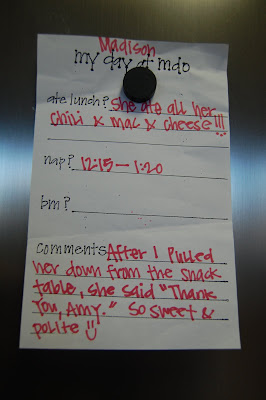 Madison
my day at mdo
ate lunch? She ate all her
chili & mac & cheese!!!
nap? 12:15 — 1:20
bm?
comments After I pulled
her down from the snack
table, she said "Thank
you, Amy." So sweet &
polite